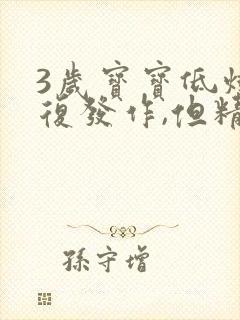 3歲寶寶低燒
復發作,但精
孫守增